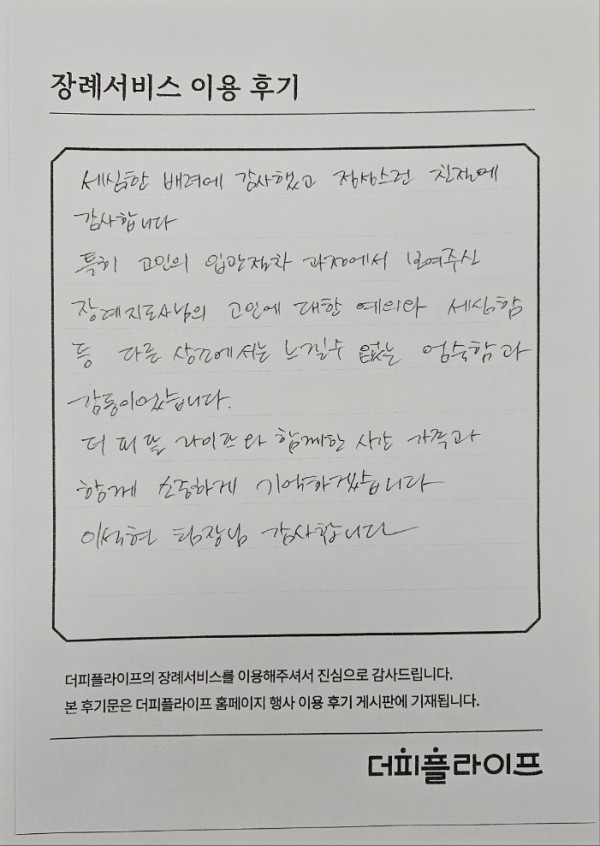 장례서비스 이용 후기
세심한 배려에 감사했고 정성스런 친절에
감사합니다
특히 고인의 입관절차 과정에서 보여주신
장례지도사님의 고인에 대한 예의와 세심함
등 다른 상조에서는 느낄수 없는 엄숙함과
감동이었습니다.
더 피플 라이프와 함께한 시간 가족과
함께 소중하게 기억하겠습니다
이석현 팀장님 감사합니다
더피플라이프의 장례서비스를 이용해주셔서 진심으로 감사드립니다.
본 후기문은 더피플라이프 홈페이지 행사 이용 후기 게시판에 기재됩니다.
더피플라이프